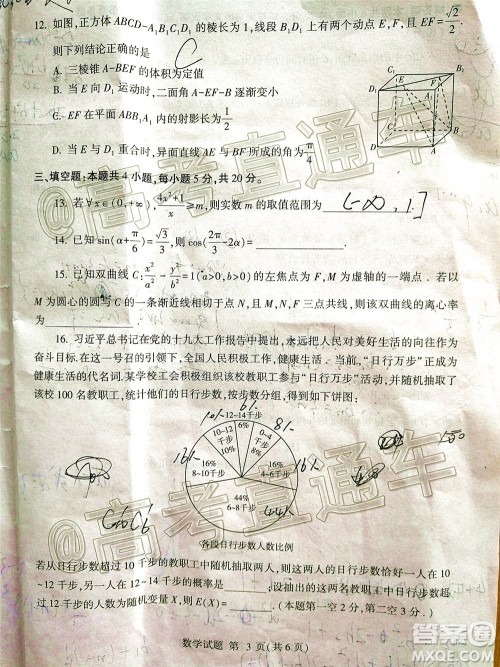 12. 如图,正方体 ABCD-A₁B₁C₁D₁ 的棱长为 1,线段 B₁D₁ 上有两个动点 E,F,且 EF=√2/2.
则下列结论正确的是
C
A. 三棱锥 A-BEF 的体积为定值
B. 当 E 向 D₁ 运动时,二面角 A-EF-B 逐渐变小
C. EF 在平面 ABB₁A₁ 内的射影长为 1/2
D. 当 E 与 D₁ 重合时,异面直线 AE 与 BF 所成的角为
C₁
E
B₁
D₁
F
A₁
C
B
D
A
三、填空题:本题共 4 小题,每小题 5 分,共 20 分。
13. 若∀x∈(0,+∞),(4x²+1)/x≥m,则实数 m 的取值范围为
14. 已知 sin(α+π/6)=√3/3,则 cos(2π/3-2α)=
15. 已知双曲线 C:x²/a²-y²/b²=1(a>0,b>0)的左焦点为 F,M 为虚轴的一端点. 若以
M 为圆心的圆与 C 的一条渐近线相切于点 N,且 M,F,N 三点共线,则该双曲线的离心率
为
16. 习近平总书记在党的十九大工作报告中提出,永远把人民对美好生活的向往作为
奋斗目标. 在这一号召的引领下,全国人民积极工作,健康生活. 当前,“日行万步”正成为
健康生活的代名词. 某学校工会积极组织该校教职工参与“日行万步”活动,并随机抽取了
该校 100 名教职工,统计他们的日行步数,按步数分组,得到如下饼图:
6%
10%
12~14 千步
8%
10~12
千步
10%
6%
0~4
千步
8%
16%
16%
8~10 千步
16%
4~6 千步
16%
44%
6~8 千步
各段日行步数人数比例
若从日行步数超过 10 千步的教职工中随机抽取两人,则这两人的日行步数恰好一人在 10
~12 千步,另一人在 12~14 千步的概率是 ;设抽出的这两名教职工中日行步数超过 12 千
步的人数为随机变量 X,则 E(X)= . (本题第一空 2 分,第二空 3 分.)
数学试题 第 3 页(共 6 页)
高考直通车
高考直通车
答案圈
MXQE.COM